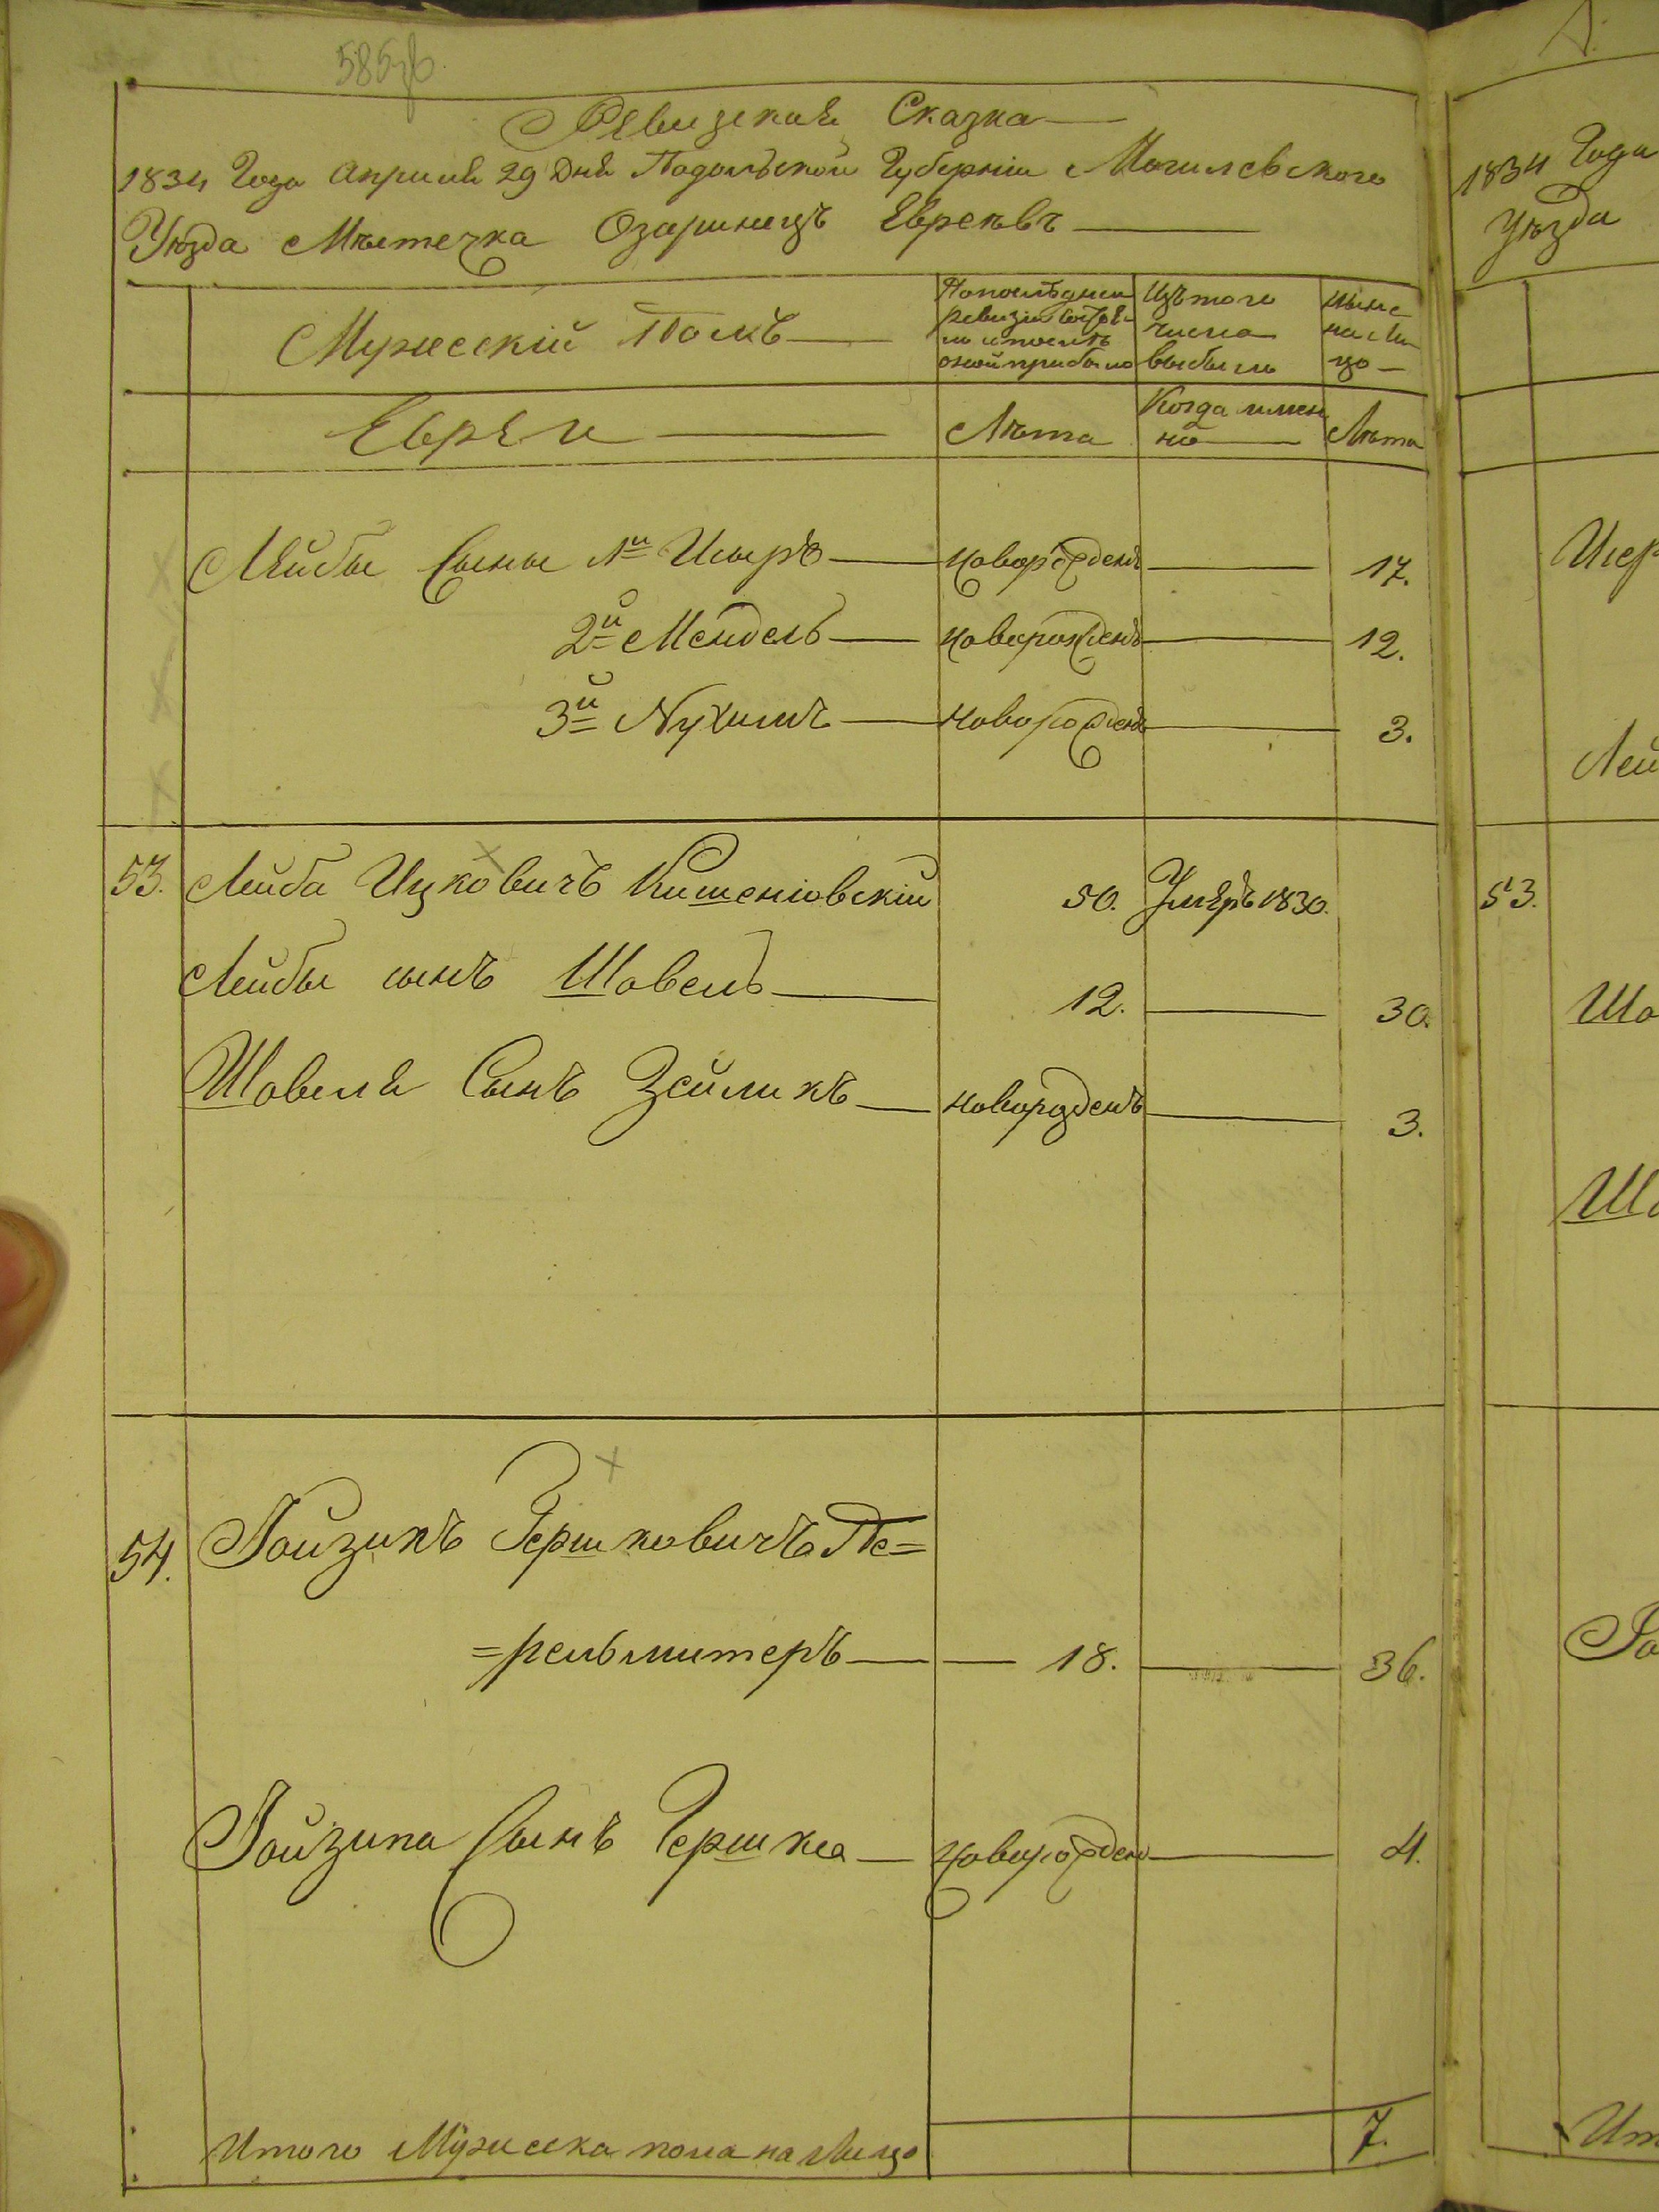 585об.
Ревизская Сказка
1834 Года Апреля 29 Дня Подольской Губерніи Могилевского
Уѣзда Мѣстечка Озаринецъ Евреевъ
Мужескій Полъ
По последней
ревизіи состоя-
ло и послѣ
оной прибыло
Изъ того
числа
выбыло
Ныне
на Ли-
цо
Евреи
Лѣта
Когда имен
но
Лѣта
Лейбы Сыны 1й Ицыръ новорожденъ 17.
2й Мендель новорожденъ 12.
3й Нухимъ новорожденъ 3.
53. Лейба Ицковичъ Кишеніовскій 50. Умеръ 1830.
Лейбы сынъ Шовель 12. 30.
Шовеля Сынъ Зейликъ новорожденъ 3.
54. Іойзикъ Гершковичъ Пе=
=рельмитеръ 18. 36.
Іойзика Сынъ Гершко новорожденъ 4.
Итого Мужеска пола на лицо 7.
1834 Года
Уѣзда
53.